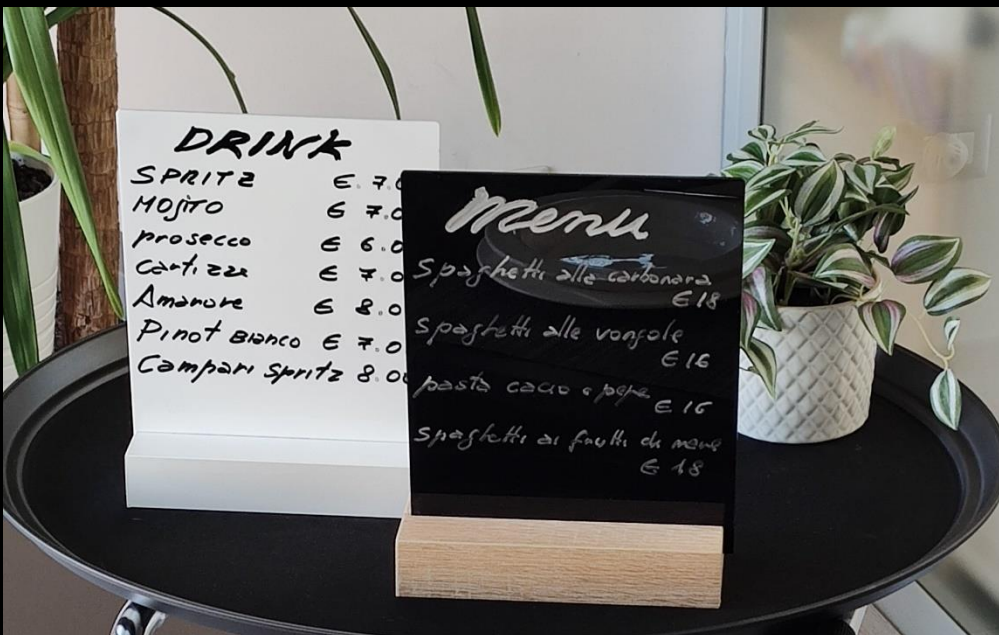 DRINK
SPRITZ €. 7.0
MOJITO € 7.0
prosecco € 6.0
Cartizze € 7.0
Amarore € 8.0
Pinot Bianco € 7.0
Campari Spritz 8.00
Menu
Spaghetti alla carbonara
€ 18
Spaghetti alle vongole
€ 16
pasta cacio e pepe
€ 16
Spaghetti ai frutti di mare
€ 18